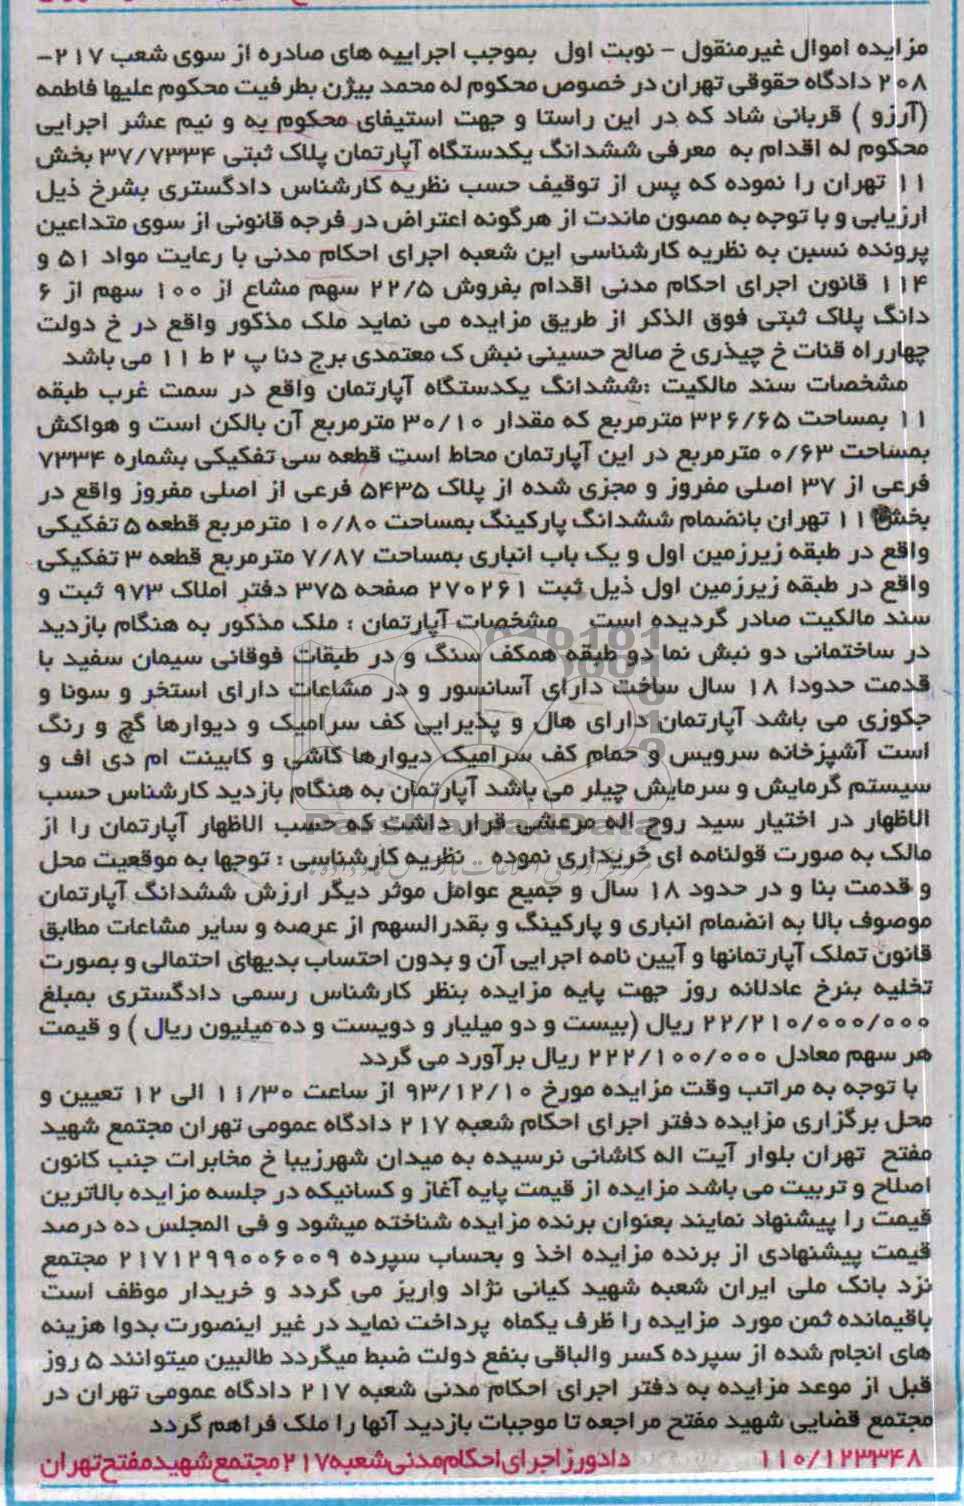 مزایده اموال غیرمنقول – نوبت اول بموجب اجراییه های صادره از سوی شعب ۲۱۷–
۲۰۸ دادگاه حقوقی تهران در خصوص محکوم له محمد بیژن بطرفیت محکوم علیها فاطمه
(آرزو ) قربانی شاد که در این راستا و جهت استیفای محکوم به و نیم عشر اجرایی
محکوم له اقدام به معرفی ششدانگ یکدستگاه آپارتمان پلاک ثبتی ۳۷/۷۳۳۴ بخش
۱۱ تهران را نموده که پس از توقیف حسب نظریه کارشناس دادگستری بشرح ذیل
ارزیابی و با توجه به مصون ماندت از هرگونه اعتراض در فرجه قانونی از سوی متداعین
پرونده نسبن به نظریه کارشناسی این شعبه اجرای احکام مدنی با رعایت مواد ۵۱ و
۱۱۴ قانون اجرای احکام مدنی اقدام بفروش ۲۲/۵ سهم مشاع از ۱۰۰ سهم از ۶
دانگ پلاک ثبتی فوق الذکر از طریق مزایده می نماید ملک مذکور واقع در خ دولت
چهارراه قنات خ چیذری خ صالح حسینی نبش ک معتمدی برج دنا پ ۲ ط ۱۱ می باشد
مشخصات سند مالکیت :ششدانگ یکدستگاه آپارتمان واقع در سمت غرب طبقه
۱۱ بمساحت ۳۲۶/۶۵ مترمربع که مقدار ۳۰/۱۰ مترمربع آن بالکن است و هواکش
بمساحت ۰/۶۳ مترمربع در این آپارتمان محاط است قطعه سی تفکیکی بشماره ۷۳۳۴
فرعی از ۳۷ اصلی مفروز و مجزی شده از پلاک ۵۴۳۵ فرعی از اصلی مفروز واقع در
بخش ۱۱ تهران بانضمام ششدانگ پارکینگ بمساحت ۱۰/۸۰ مترمربع قطعه ۵ تفکیکی
واقع در طبقه زیرزمین اول و یک باب انباری بمساحت ۷/۸۷ مترمربع قطعه ۳ تفکیکی
واقع در طبقه زیرزمین اول ذیل ثبت ۲۷۰۲۶۱ صفحه ۳۷۵ دفتر املاک ۹۷۳ ثبت و
سند مالکیت صادر گردیده است مشخصات آپارتمان : ملک مذکور به هنگام بازدید
در ساختمانی دو نبش نما دو طبقه همکف سنگ و در طبقات فوقانی سیمان سفید با
قدمت حدودا ۱۸ سال ساخت دارای آسانسور و در مشاعات دارای استخر و سونا و
جکوزی می باشد آپارتمان دارای هال و پذیرایی کف سرامیک و دیوارها گچ و رنگ
است آشپزخانه سرویس و حمام کف سرامیک دیوارها کاشی و کابینت ام دی اف و
سیستم گرمایش و سرمایش چیلر می باشد آپارتمان به هنگام بازدید کارشناس حسب
الاظهار در اختیار سید روح اله مرعشی قرار داشت که حسب الاظهار آپارتمان را از
مالک به صورت قولنامه ای خریداری نموده نظریه کارشناسی : توجها به موقعیت محل
و قدمت بنا و در حدود ۱۸ سال و جمیع عوامل موثر دیگر ارزش ششدانگ آپارتمان
موصوف بالا به انضمام انباری و پارکینگ و بقدرالسهم از عرصه و سایر مشاعات مطابق
قانون تملک آپارتمانها و آیین نامه اجرایی آن و بدون احتساب بدیهای احتمالی و بصورت
تخلیه بنرخ عادلانه روز جهت پایه مزایده بنظر کارشناس رسمی دادگستری بمبلغ
۲۲/۲۱۰/۰۰۰/۰۰۰ ریال (بیست و دو میلیار و دویست و ده میلیون ریال ) و قیمت
هر سهم معادل ۲۲۲/۱۰۰/۰۰۰ ریال برآورد می گردد
با توجه به مراتب وقت مزایده مورخ ۹۳/۱۲/۱۰ از ساعت ۱۱/۳۰ الی ۱۲ تعیین و
محل برگزاری مزایده دفتر اجرای احکام شعبه ۲۱۷ دادگاه عمومی تهران مجتمع شهید
مفتح تهران بلوار آیت اله کاشانی نرسیده به میدان شهرزیبا خ مخابرات جنب کانون
اصلاح و تربیت می باشد مزایده از قیمت پایه آغاز و کسانیکه در جلسه مزایده بالاترین
قیمت را پیشنهاد نمایند بعنوان برنده مزایده شناخته میشود و فی المجلس ده درصد
قیمت پیشنهادی از برنده مزایده اخذ و بحساب سپرده ۲۱۷۱۲۹۹۰۰۶۰۰۹ مجتمع
نزد بانک ملی ایران شعبه شهید کیانی نژاد واریز می گردد و خریدار موظف است
باقیمانده ثمن مورد مزایده را ظرف یکماه پرداخت نماید در غیر اینصورت بدوا هزینه
های انجام شده از سپرده کسر والباقی بنفع دولت ضبط میگردد طالبین میتوانند ۵ روز
قبل از موعد مزایده به دفتر اجرای احکام مدنی شعبه ۲۱۷ دادگاه عمومی تهران در
مجتمع قضایی شهید مفتح مراجعه تا موجبات بازدید آنها را ملک فراهم گردد
۱۱۰/۱۲۳۳۴۸ دادورز اجرای احکام مدنی شعبه ۲۱۷ مجتمع شهید مفتح تهران